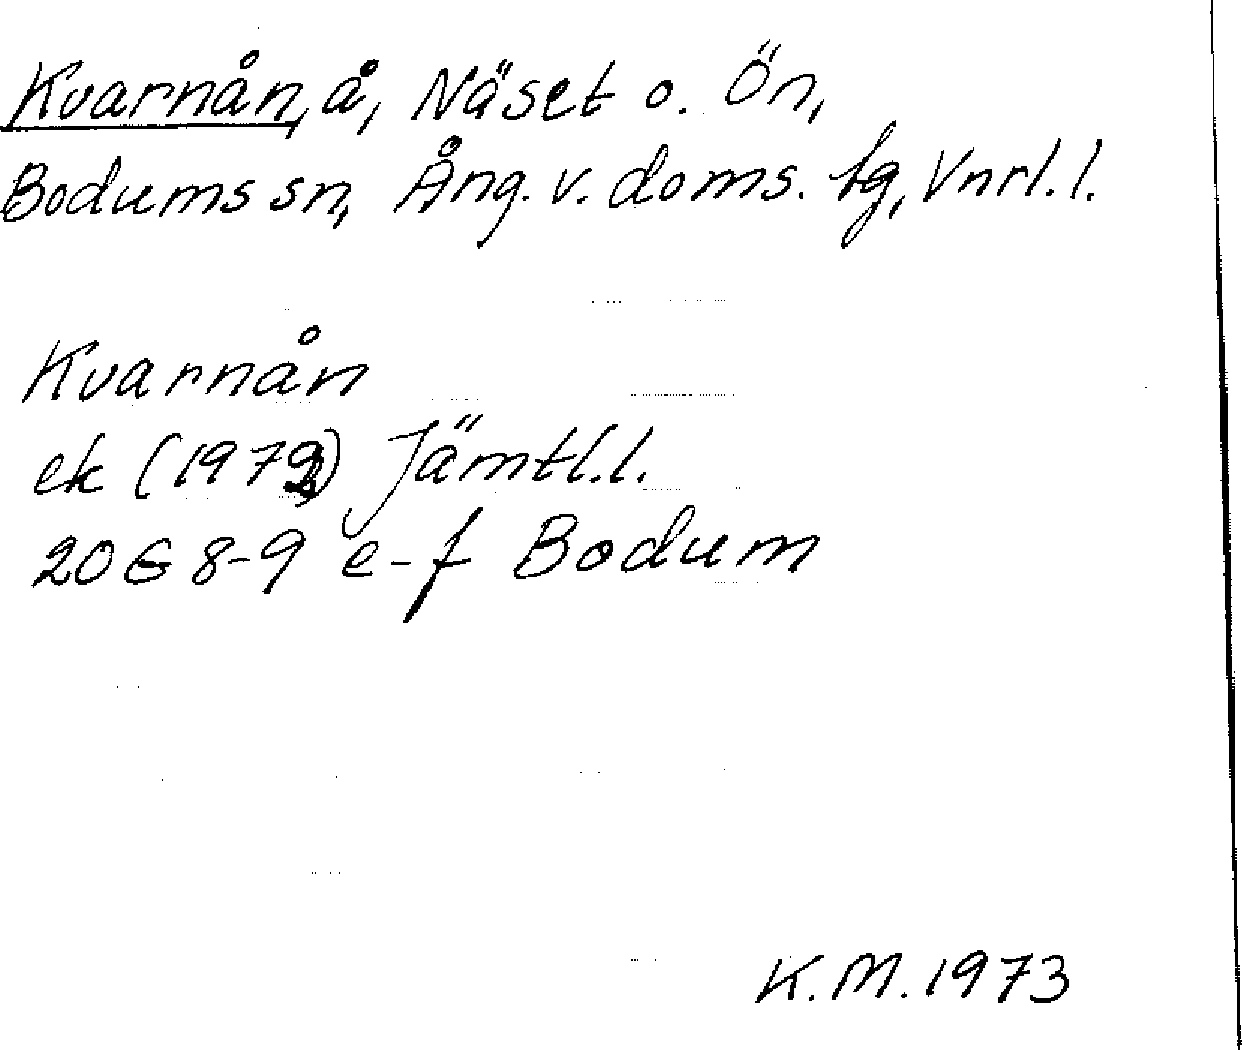 Kvarnån, å, Näset o. Ön,
Bodums sn, Ång. v. doms. tg, Vnrl. l.
Kvarnån
ek (1972) Jämtl. l.
20G 8-9 e-f Bodum
K. M. 1973